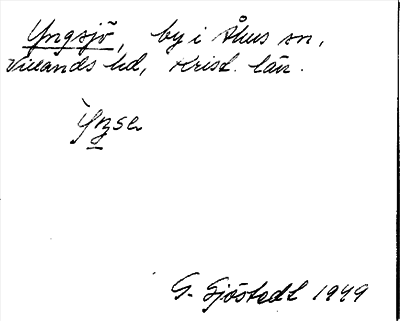 Yngsjö, by i Åhus sn,
Villands hd, Krist. län.
Yngse
G. Sjöstedt 1949